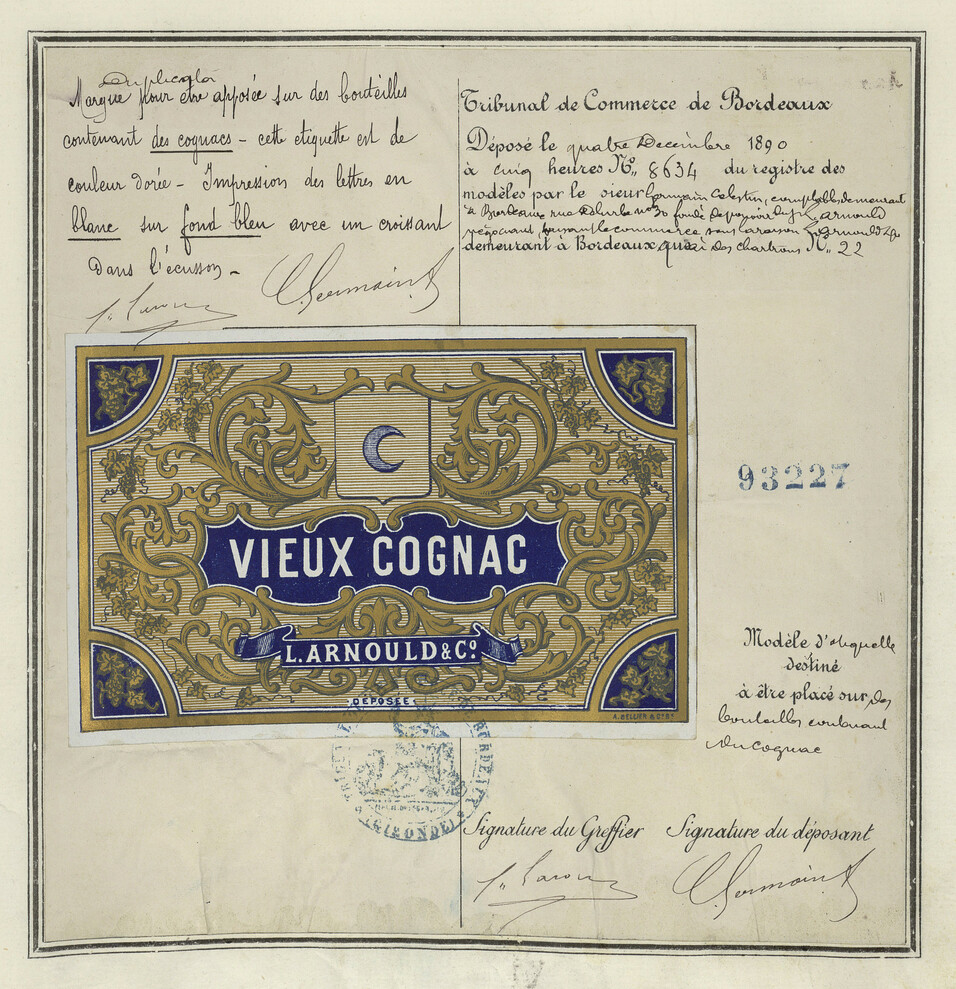 Duplicata
Marque pour être apposée sur des bouteilles
contenant des cognacs - cette etiquette est de
couleur dorée - Impression des lettres en
blanc sur fond bleu avec un croissant
dans l'écusson -
C. Germain
Tribunal de Commerce de Bordeaux
Déposé le quatre Decembre 1890
à cinq heures N° 8634 du registre des
modèles par le sieur Germain Celestin, comptable demeurant
à Bordeaux rue N° 30 fondé de pouvoir du Sr L. Arnould
négociant, faisant le commerce sous la raison L. Arnould & Cie
demeurant à Bordeaux quai des chartrons N° 22
VIEUX COGNAC
L. ARNOULD & Cº.
DÉPOSÉE
A. BELLIER & Cº Bx
93227
Modèle d'étiquette
destiné
à être placé sur des
bouteilles contenant
du cognac
BORDEAUX
(GIRONDE)
Signature du Greffier Signature du déposant
C. Germain